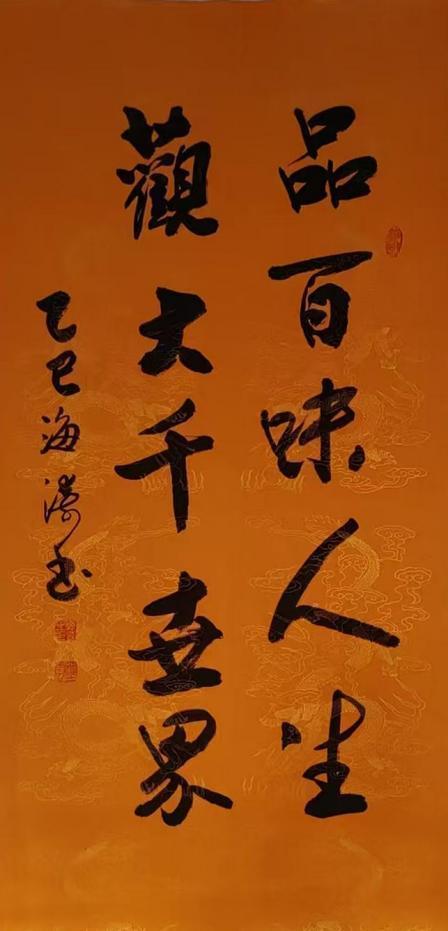 品百味人生
觀大千世界
乙巳海濤书